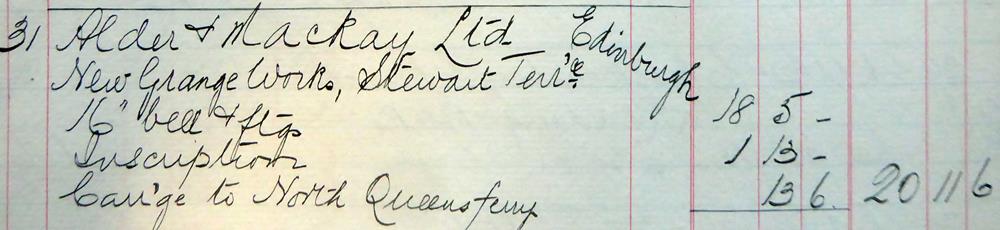 31 Alder & Mackay Ltd Edinburgh
New Grange Works, Stewart Terr'ce
16" bell & ftgs 18 5 -
Inscription 1 13 -
Carr'ge to North Queensferry 13 6. 20 11 6